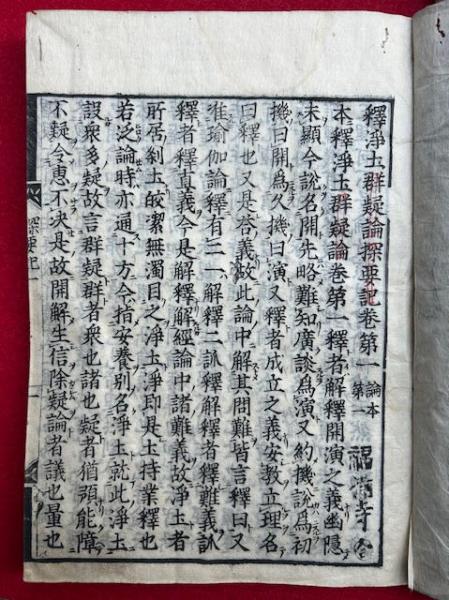 釋淨土群疑論探要記卷第一 論本第一
本釋淨土群疑論卷第一釋者解釋開演之義幽隱
未顯今說名開先略難知廣談為演又約機說為初
機曰開為久機曰演又釋者成立之義安教立理名
曰釋也又是答義故此論中解其問難皆言釋曰又
准瑜伽論釋有二一解釋二訓釋解釋者釋難義訓
釋者釋直義今是解釋解經論中諸難義故淨土者
所居刹土皎潔無濁目之淨土淨即是土持業釋也
若泛論時亦通十方今指安養別名淨土就此淨土
設衆多疑故言群疑群者衆也諸也疑者猶預能障
不疑令惠不決是故開解生信除疑論者議也量也
探要記一